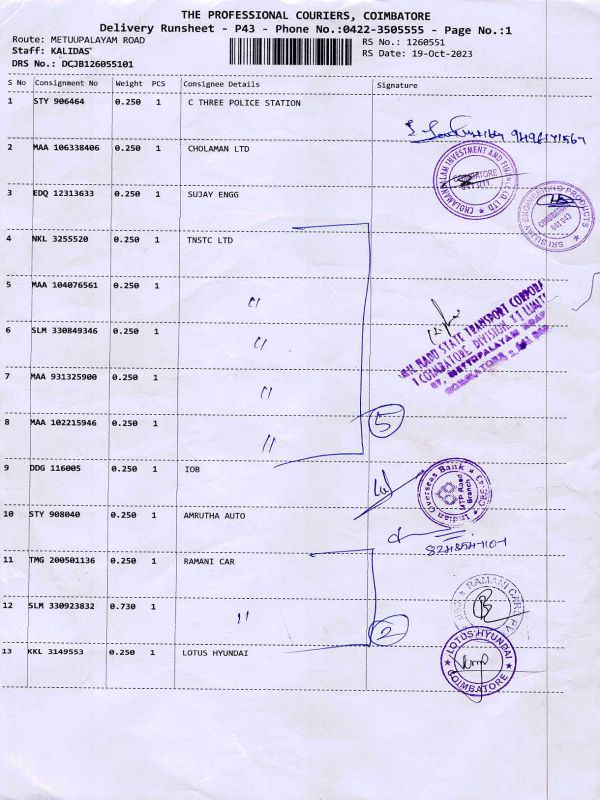 THE PROFESSIONAL COURIERS, COIMBATORE
Delivery Runsheet - P43 - Phone No.:0422-3505555 - Page No.:1
Route: METUUPALAYAM ROAD
RS No.: 1260551
Staff: KALIDAS
RS Date: 19-Oct-2023
DRS No.: DCJB126055101
S No Consignment No Weight PCS Consignee Details Signature
1 STY 906464 0.250 1 C THREE POLICE STATION
2 MAA 106338406 0.250 1 CHOLAMAN LTD
CHOLAMANDALAM INVESTMENT AND FINANCE CO LTD
COIMBATORE
3 EDQ 12313633 0.250 1 SUJAY ENGG
SRI SUJAY ENGINEERING PRODUCTS
COIMBATORE
641 043
4 NKL 3255520 0.250 1 TNSTC LTD
5 MAA 104076561 0.250 1 "
6 SLM 330849346 0.250 1 "
STATE TRANSPORT CORPORA
COIMBATORE DIVISION
METTUPALAYAM ROAD
COIMBATORE
7 MAA 931325900 0.250 1 "
8 MAA 102215946 0.250 1 "
5
9 DDG 116005 0.250 1 IOB
Indian Overseas Bank
MTP Road
Branch
10 STY 908040 0.250 1 AMRUTHA AUTO
11 TMG 200501136 0.250 1 RAMANI CAR
RAMANI CARS
12 SLM 330923832 0.730 1 "
2
13 KKL 3149553 0.250 1 LOTUS HYUNDAI
LOTUS HYUNDAI
COIMBATORE